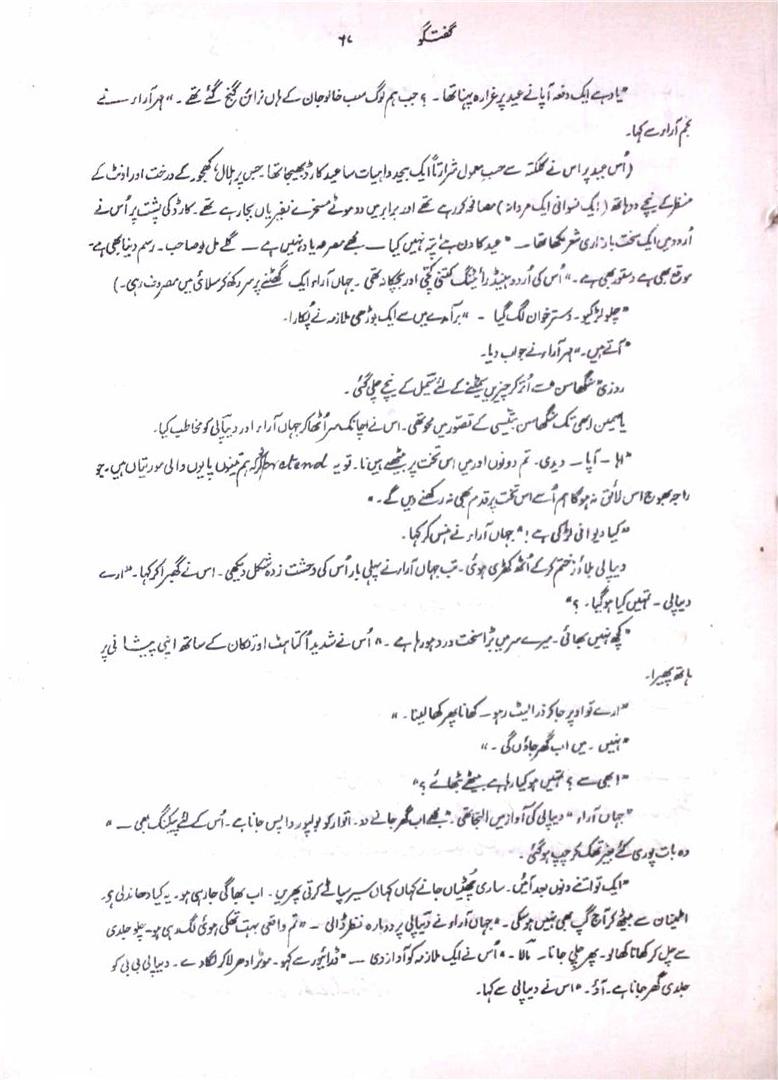 گفتگو ۶۷
"یاد ہے ایک دفعہ آپا نے عید پر غرارہ پہنا تھا۔ ؟ جب ہم لوگ سب خالو جان کے ہاں نرائن گنج گئے تھے۔" مہر آراء نے
نجم آراء سے کہا۔
(اُس عید پر اس نے کلکتہ سے حسب معمول شرارتاً ایک بیحد واہیات سا عید کارڈ بھیجا تھا۔ جس پر ہلال، کھجور کے درخت اور اونٹ کے
منظر کے نیچے دو ہاتھ (ایک نسوانی ایک مردانہ) مصافحہ کر رہے تھے اور برابر میں دو موٹے مسخرے نفیریاں بجا رہے تھے۔ کارڈ کی پشت پر اُس نے
اُردو میں ایک سخت بازاری شعر لکھا تھا — "عید کا دن ہے پتہ نہیں کیا — مجھے مصرعہ یاد نہیں ہے — گلے مل لو صاحب۔ رسم دنیا بھی ہے۔
موقع بھی ہے دستور بھی ہے۔" اُس کی اُردو ہینڈ رائیٹنگ کتنی کچی اور بچکانہ تھی۔ جہاں آراء ایک گھٹنے پر سر رکھ کر سلائی میں مصروف رہی۔)
"چلو لڑکیو۔ دسترخوان لگ گیا —" برآمدے میں سے ایک بوڑھی ملازمہ نے پُکارا۔
"آتے ہیں۔" مہر آراء نے جواب دیا۔
روزی سنگھاسن سے اُتر کر چیزیں سمیٹنے کے لئے شمیل کے نیچے چلی گئی۔
یاسمین ابھی تک سنگھاسن بتیسی کے تصوّر میں محو تھی۔ اس نے اچانک سر اُٹھا کر جہاں آراء اور دیپالی کو مخاطب کیا۔
"اہا — آپا — دیدی۔ تم دونوں اور میں اس تخت پر بیٹھے ہیں نا۔ تو یہ pretend کرو کہ ہم تینوں پایوں والی مورتیاں ہیں۔ جو
راجہ بھوج اس لائق نہ ہوگا ہم اُسے اس تخت پر قدم بھی نہ رکھنے دیں گے۔"
"کیا دیوانی لڑکی ہے!" جہاں آراء نے ہنس کر کہا۔
دیپالی بلاؤز ختم کر کے اُٹھ کھڑی ہوئی۔ تب جہاں آراء نے پہلی بار اُس کی وحشت زدہ شکل دیکھی۔ اس نے گھبرا کر کہا۔ "ارے
دیپالی — تمہیں کیا ہو گیا۔ ؟"
"کچھ نہیں بھائی۔ میرے سر میں بڑا سخت درد ہو رہا ہے۔" اُس نے شدید اُکتاہٹ اور تکان کے ساتھ اپنی پیشانی پر
ہاتھ پھیرا۔
"ارے تو اوپر جا کر ذرا لیٹ رہو — کھانا پھر کھا لینا۔"
"نہیں۔ میں اب گھر جاؤں گی۔"
"ابھی سے؟ تمہیں ہو کیا رہا ہے بیٹھے بٹھائے؟"
"جہاں آراء" دیپالی کی آواز میں التجا تھی۔ "مجھے اب گھر جانے دو۔ اتوار کو بولپور واپس جانا ہے۔ اُس کے لئے پیکنگ بھی —"
وہ بات پوری کئے بغیر تھک کر چپ ہو گئی۔
"ایک تو اتنے دنوں بعد آئیں۔ ساری چھٹیاں جانے کہاں کہاں سیر سپاٹے کرتی پھریں۔ اب بھاگی جا رہی ہو۔ یہ کیا دھاندلی ہے۔
اطمینان سے بیٹھ کر آج گپ بھی نہیں ہو سکی۔" جہاں آراء نے دیپالی پر دوبارہ نظر ڈالی — "تم واقعی بہت تھکی ہوئی لگ رہی ہو۔ چلو جلدی
سے چل کر کھانا کھا لو۔ پھر چلی جانا۔ مالا۔" اُس نے ایک ملازمہ کو آواز دی — "ڈرائیور سے کہو۔ موٹر ادھر لا کر لگا دے۔ دیپالی بی بی کو
جلدی گھر جانا ہے۔ آؤ۔" اس نے دیپالی سے کہا۔